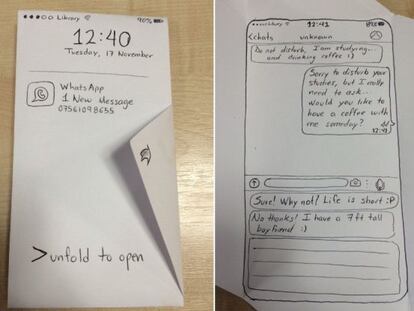 Library 90%
12:40
Tuesday, 17 November
WhatsApp
1 New Message
07561098655
>unfold to open
Library 12:41 89%
<chats unknown
Do not disturb, I am studying...
and drinking coffee :)
Sorry to disturb your
studies, but I really
need to ask...
would you like to
have a coffee with
me someday?
12:43
Sure! Why not? Life is short :P
No thanks! I have a 7ft tall
boyfriend :)